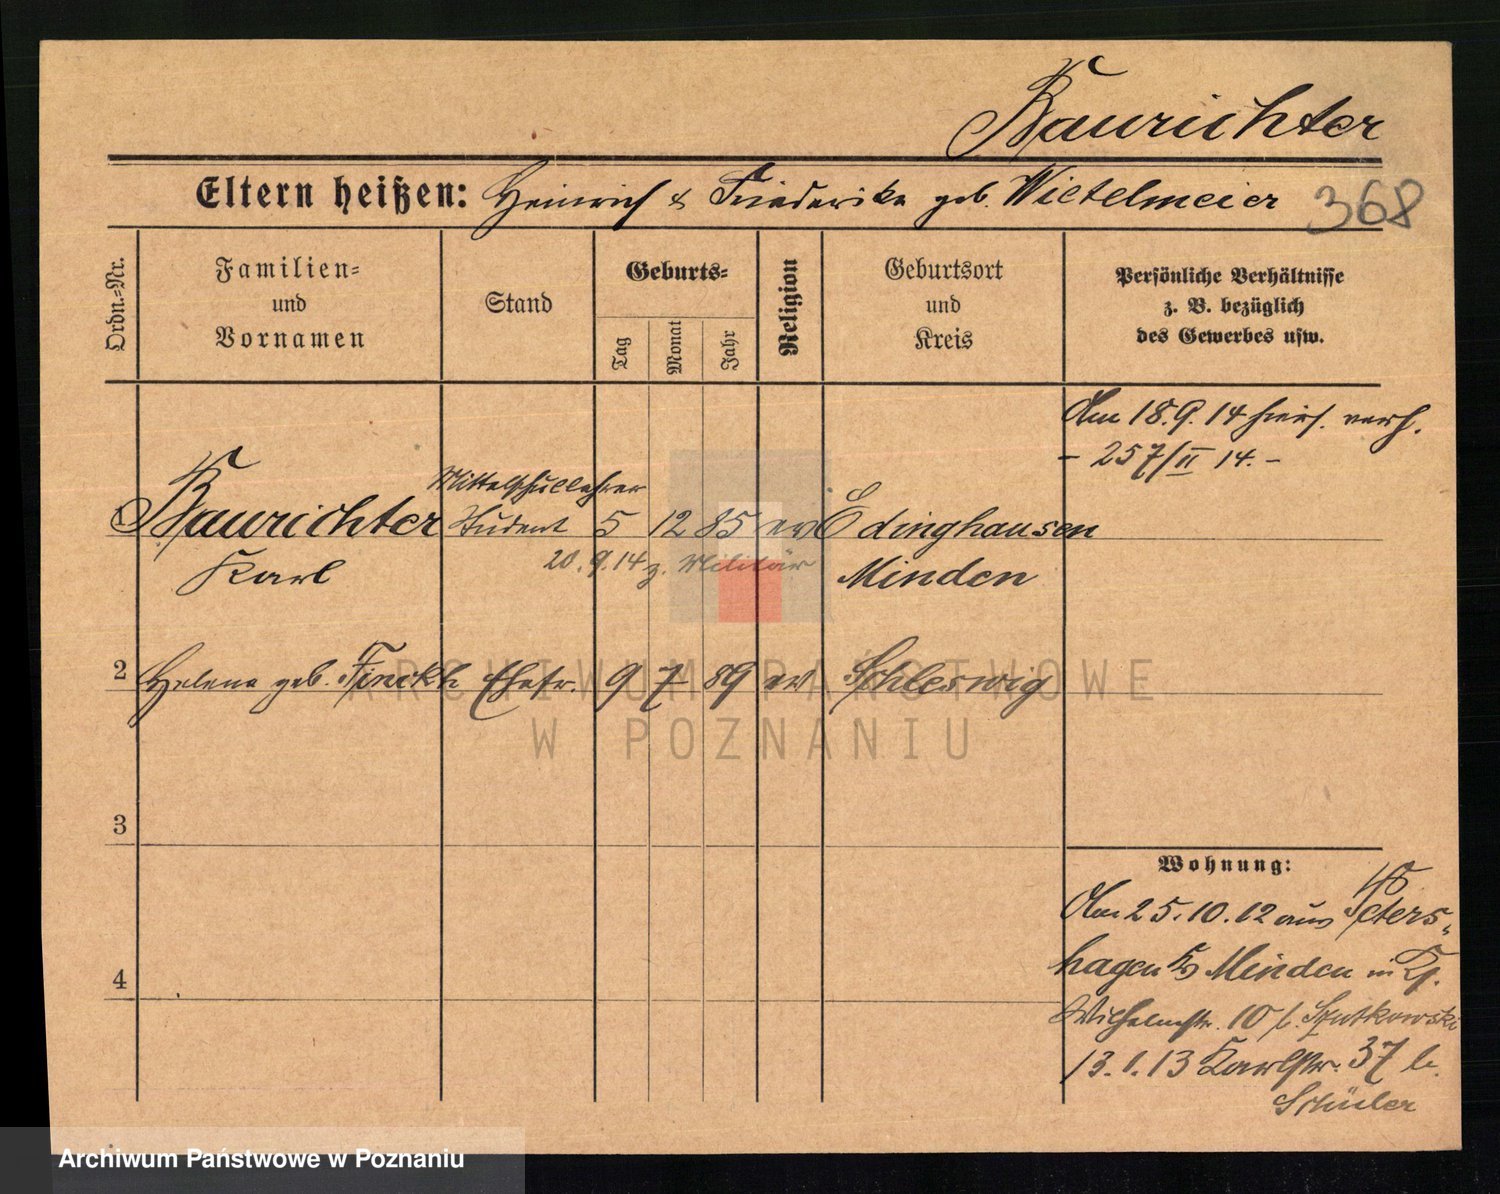 Baurichter
Eltern heißen: Heinrich & Friederike geb. Wietelmeier 368
Ordn.-Nr.
Familien-
und
Vornamen
Stand
Geburts-
Tag
Monat
Jahr
Religion
Geburtsort
und
Kreis
Persönliche Verhältnisse
z. B. bezüglich
des Gewerbes usw.
Am 18.9.14 hiers. verh.
- 257/II 14. -
Mittelschullehrer
1 Baurichter Student 5 12 85 ev Edinghausen
20.9.14 z. Militär
Karl Minden
2 Helene geb. Finckh Ehefr. 9 7 89 ev Schleswig
3
4
Wohnung:
Am 25.10.12 aus Peters-
hagen Kr Minden in
Wilhelmstr. 10 b. Szutkowski
13.1.13 Karlstr. 37 b.
Schüler
ARCHIWUM PAŃSTWOWE
W POZNANIU
Archiwum Państwowe w Poznaniu